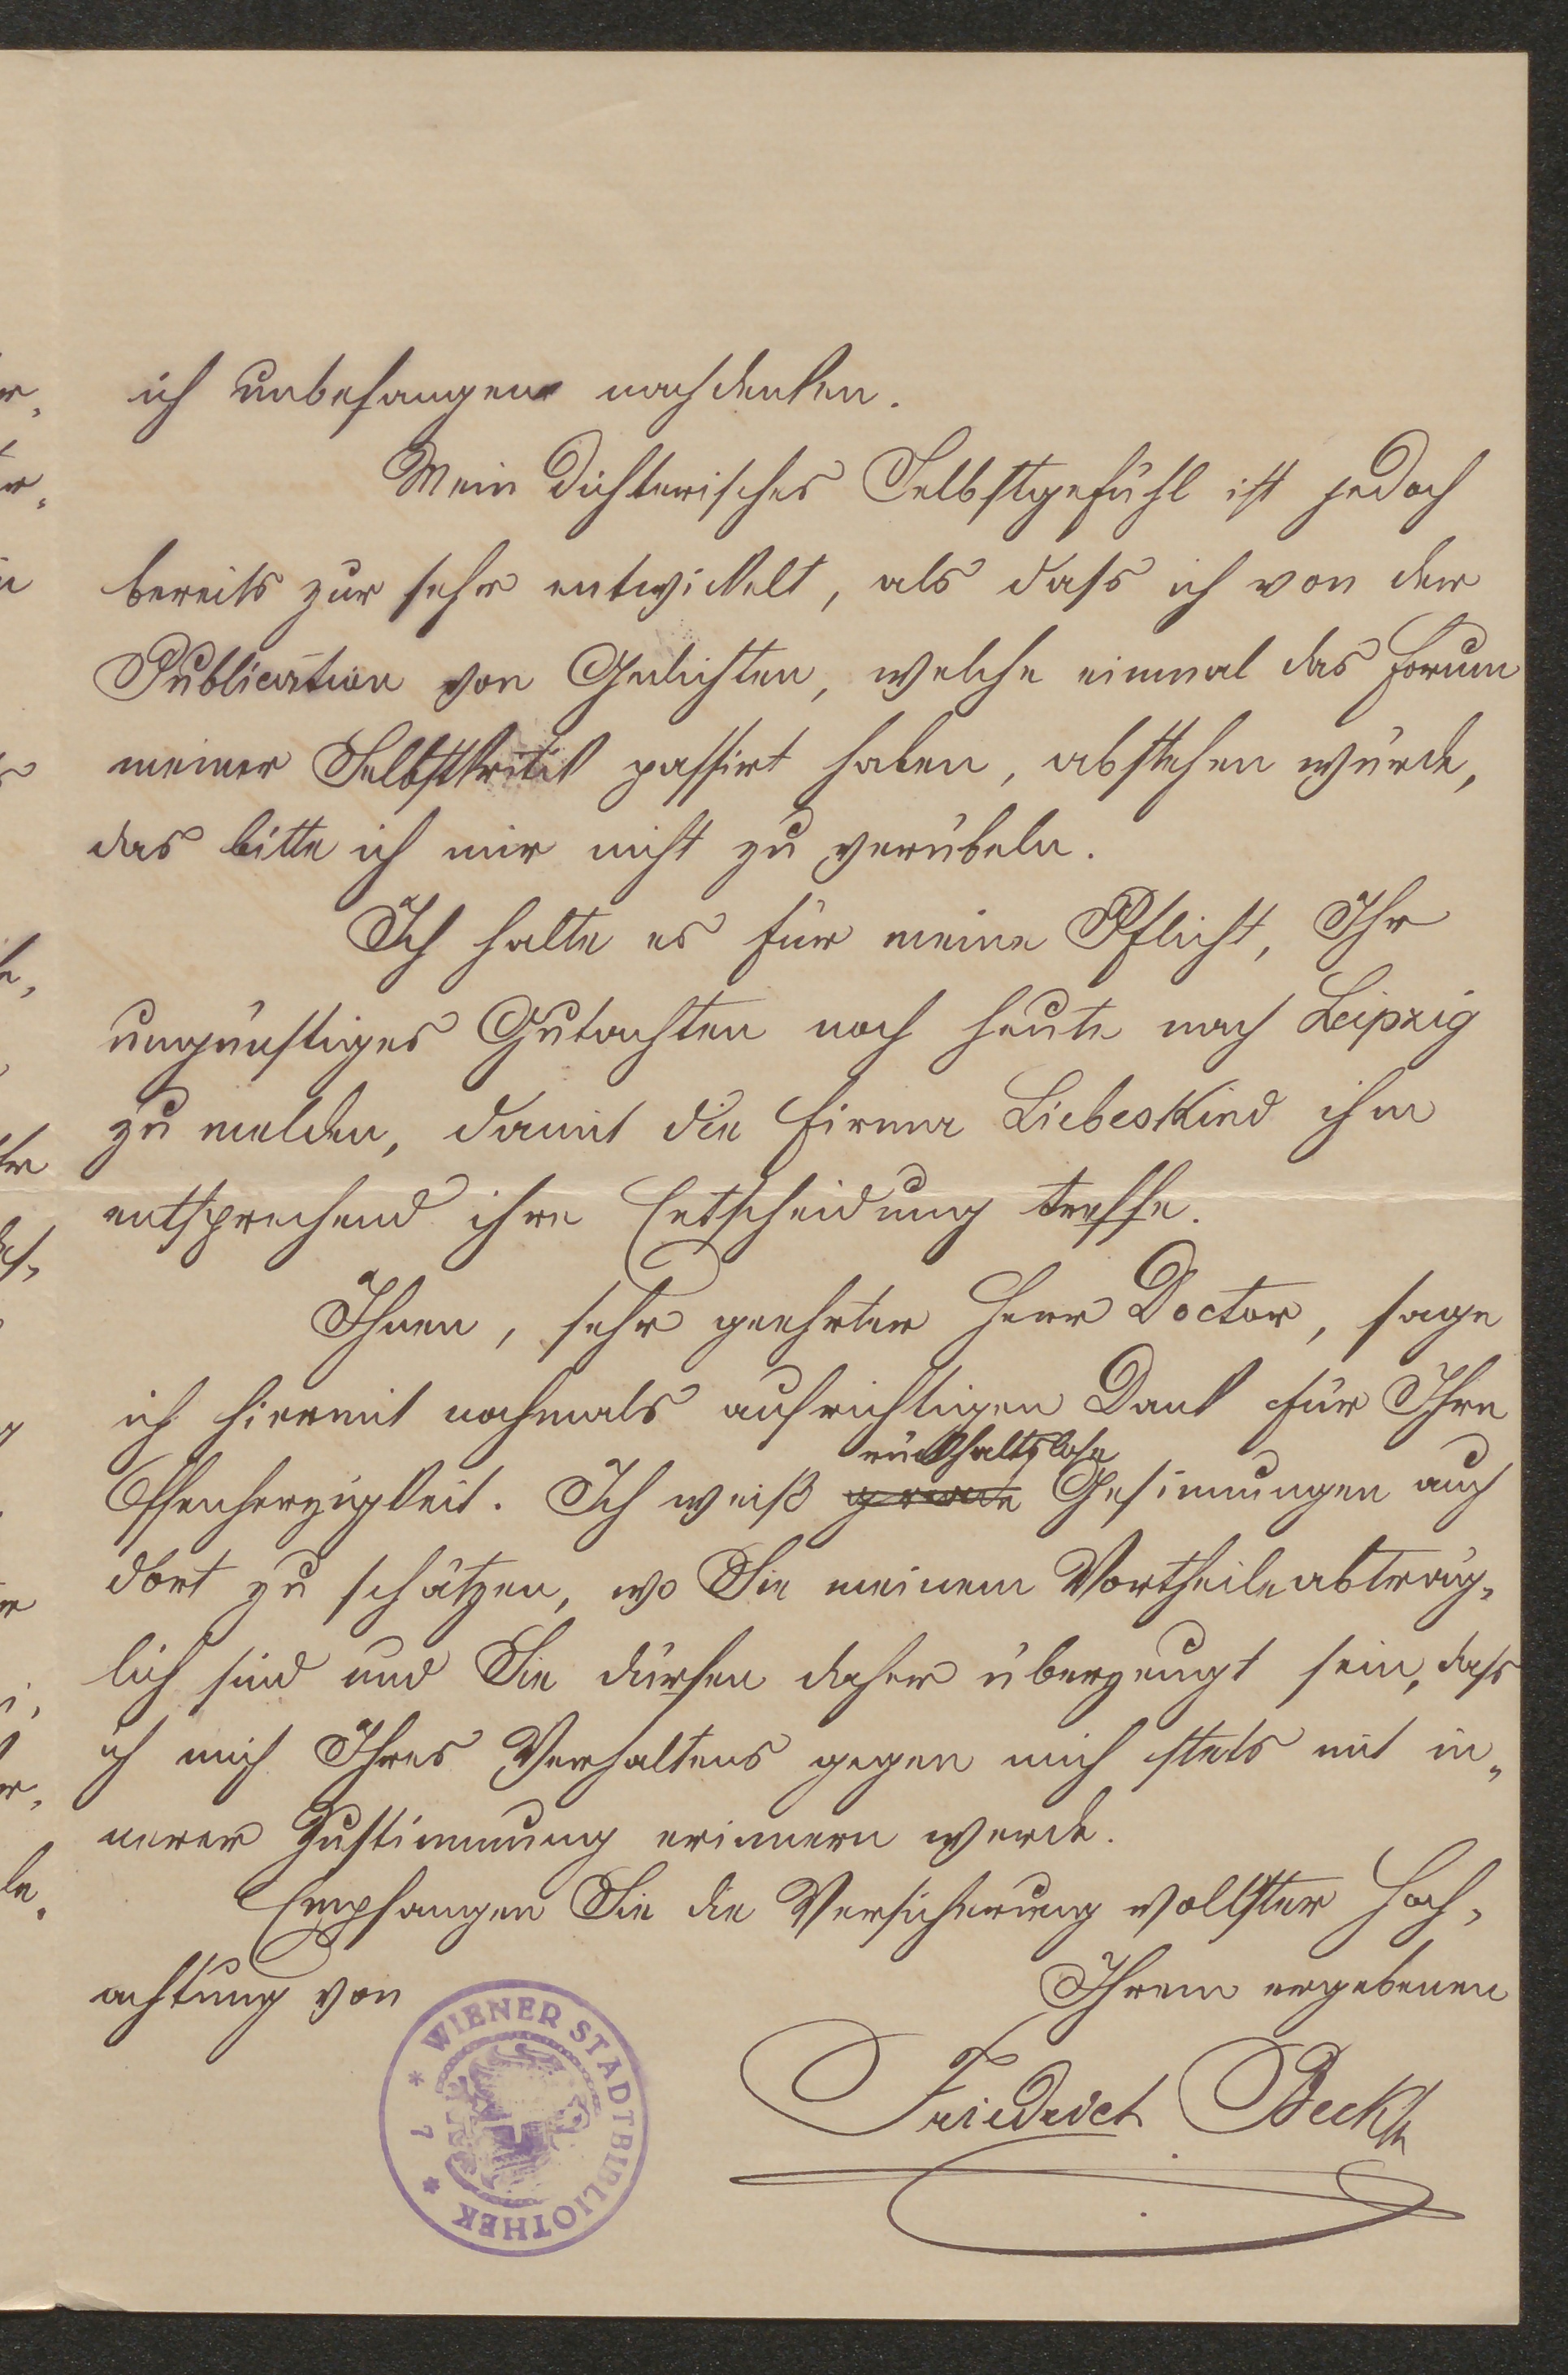 ich unbefangen nachdenken.
Mein dichterisches Selbstgefühl ist jedoch
bereits zur sehr entwickelt, als dass ich von der
Publication von Gedichten, welche einmal das Forum
meiner Selbstkritik passirt haben, abstehen würde,
das bitte ich mir nicht zu verübeln.
Ich halte es für meine Pflicht, Ihr
ungünstiges Gutachten noch heute nach Leipzig
zu melden, damit die Firma Liebeskind ihm
entsprechend ihre Entscheidung treffe.
Ihnen, sehr geehrter Herr Doctor, sage
ich hiermit nochmals aufrichtigen Dank für Ihre
rückhaltslose
Offenherzigkeit. Ich weiß Gesinnungen auch
dort zu schätzen, wo Sie meinem Vortheile abträg-
lich sind und Sie dürfen daher überzeugt sein, dass
ich mich Ihres Verhaltens gegen mich stets mit in-
nerer Zustimmung erinnern werde.
Empfangen Sie die Versicherung vollster Hoch-
achtung von
Ihrem ergebenen
Friedrich
WIENER STADTBIBLIOTHEK * 7 *